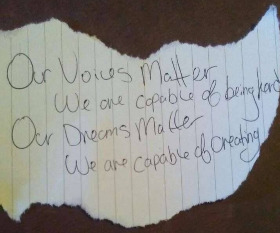 Our Voices Matter
We are capable of being hard
Our Dreams Matter
We are capable of Creating